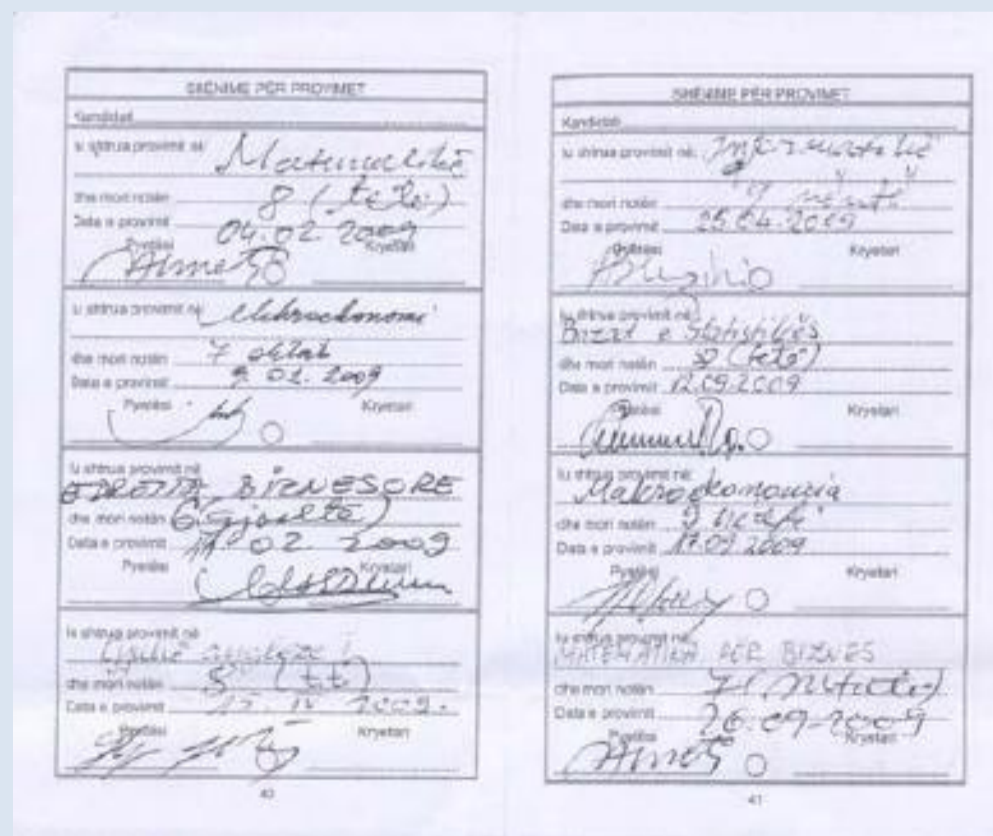 SHËNIME PËR PROVIMET
Kandidati
Iu shtrua provimit në:
Matematikë
dhe mori notën 8 (tetë)
Data e provimit 04.02.2009
Pyetësi Kryetari
Iu shtrua provimit në: Mikroekonomi
dhe mori notën 7
Data e provimit 9.02.2009
Pyetësi Kryetari
Iu shtrua provimit në
E DREJTA BIZNESORE
dhe mori notën 6
Data e provimit 11 02 2009
Pyetësi Kryetari
Iu shtrua provimit në
dhe mori notën
Data e provimit 2009.
Pyetësi Kryetari
40
SHËNIME PËR PROVIMET
Kandidati
Iu shtrua provimit në: Informatikë
dhe mori notën 9 nëntë
Data e provimit 25.04.2009
Pyetësi Kryetari
Iu shtrua provimit në:
Bazat e Statistikës
dhe mori notën (tetë)
Data e provimit 12.09.2009
Pyetësi Kryetari
Iu shtrua provimit në:
Makroekonomia
dhe mori notën 9
Data e provimit 17.09 2009
Pyetësi Kryetari
Iu shtrua provimit në:
MATEMATIKA PËR BIZNES
dhe mori notën
Data e provimit 26.09-2009
Pyetësi Kryetari
41